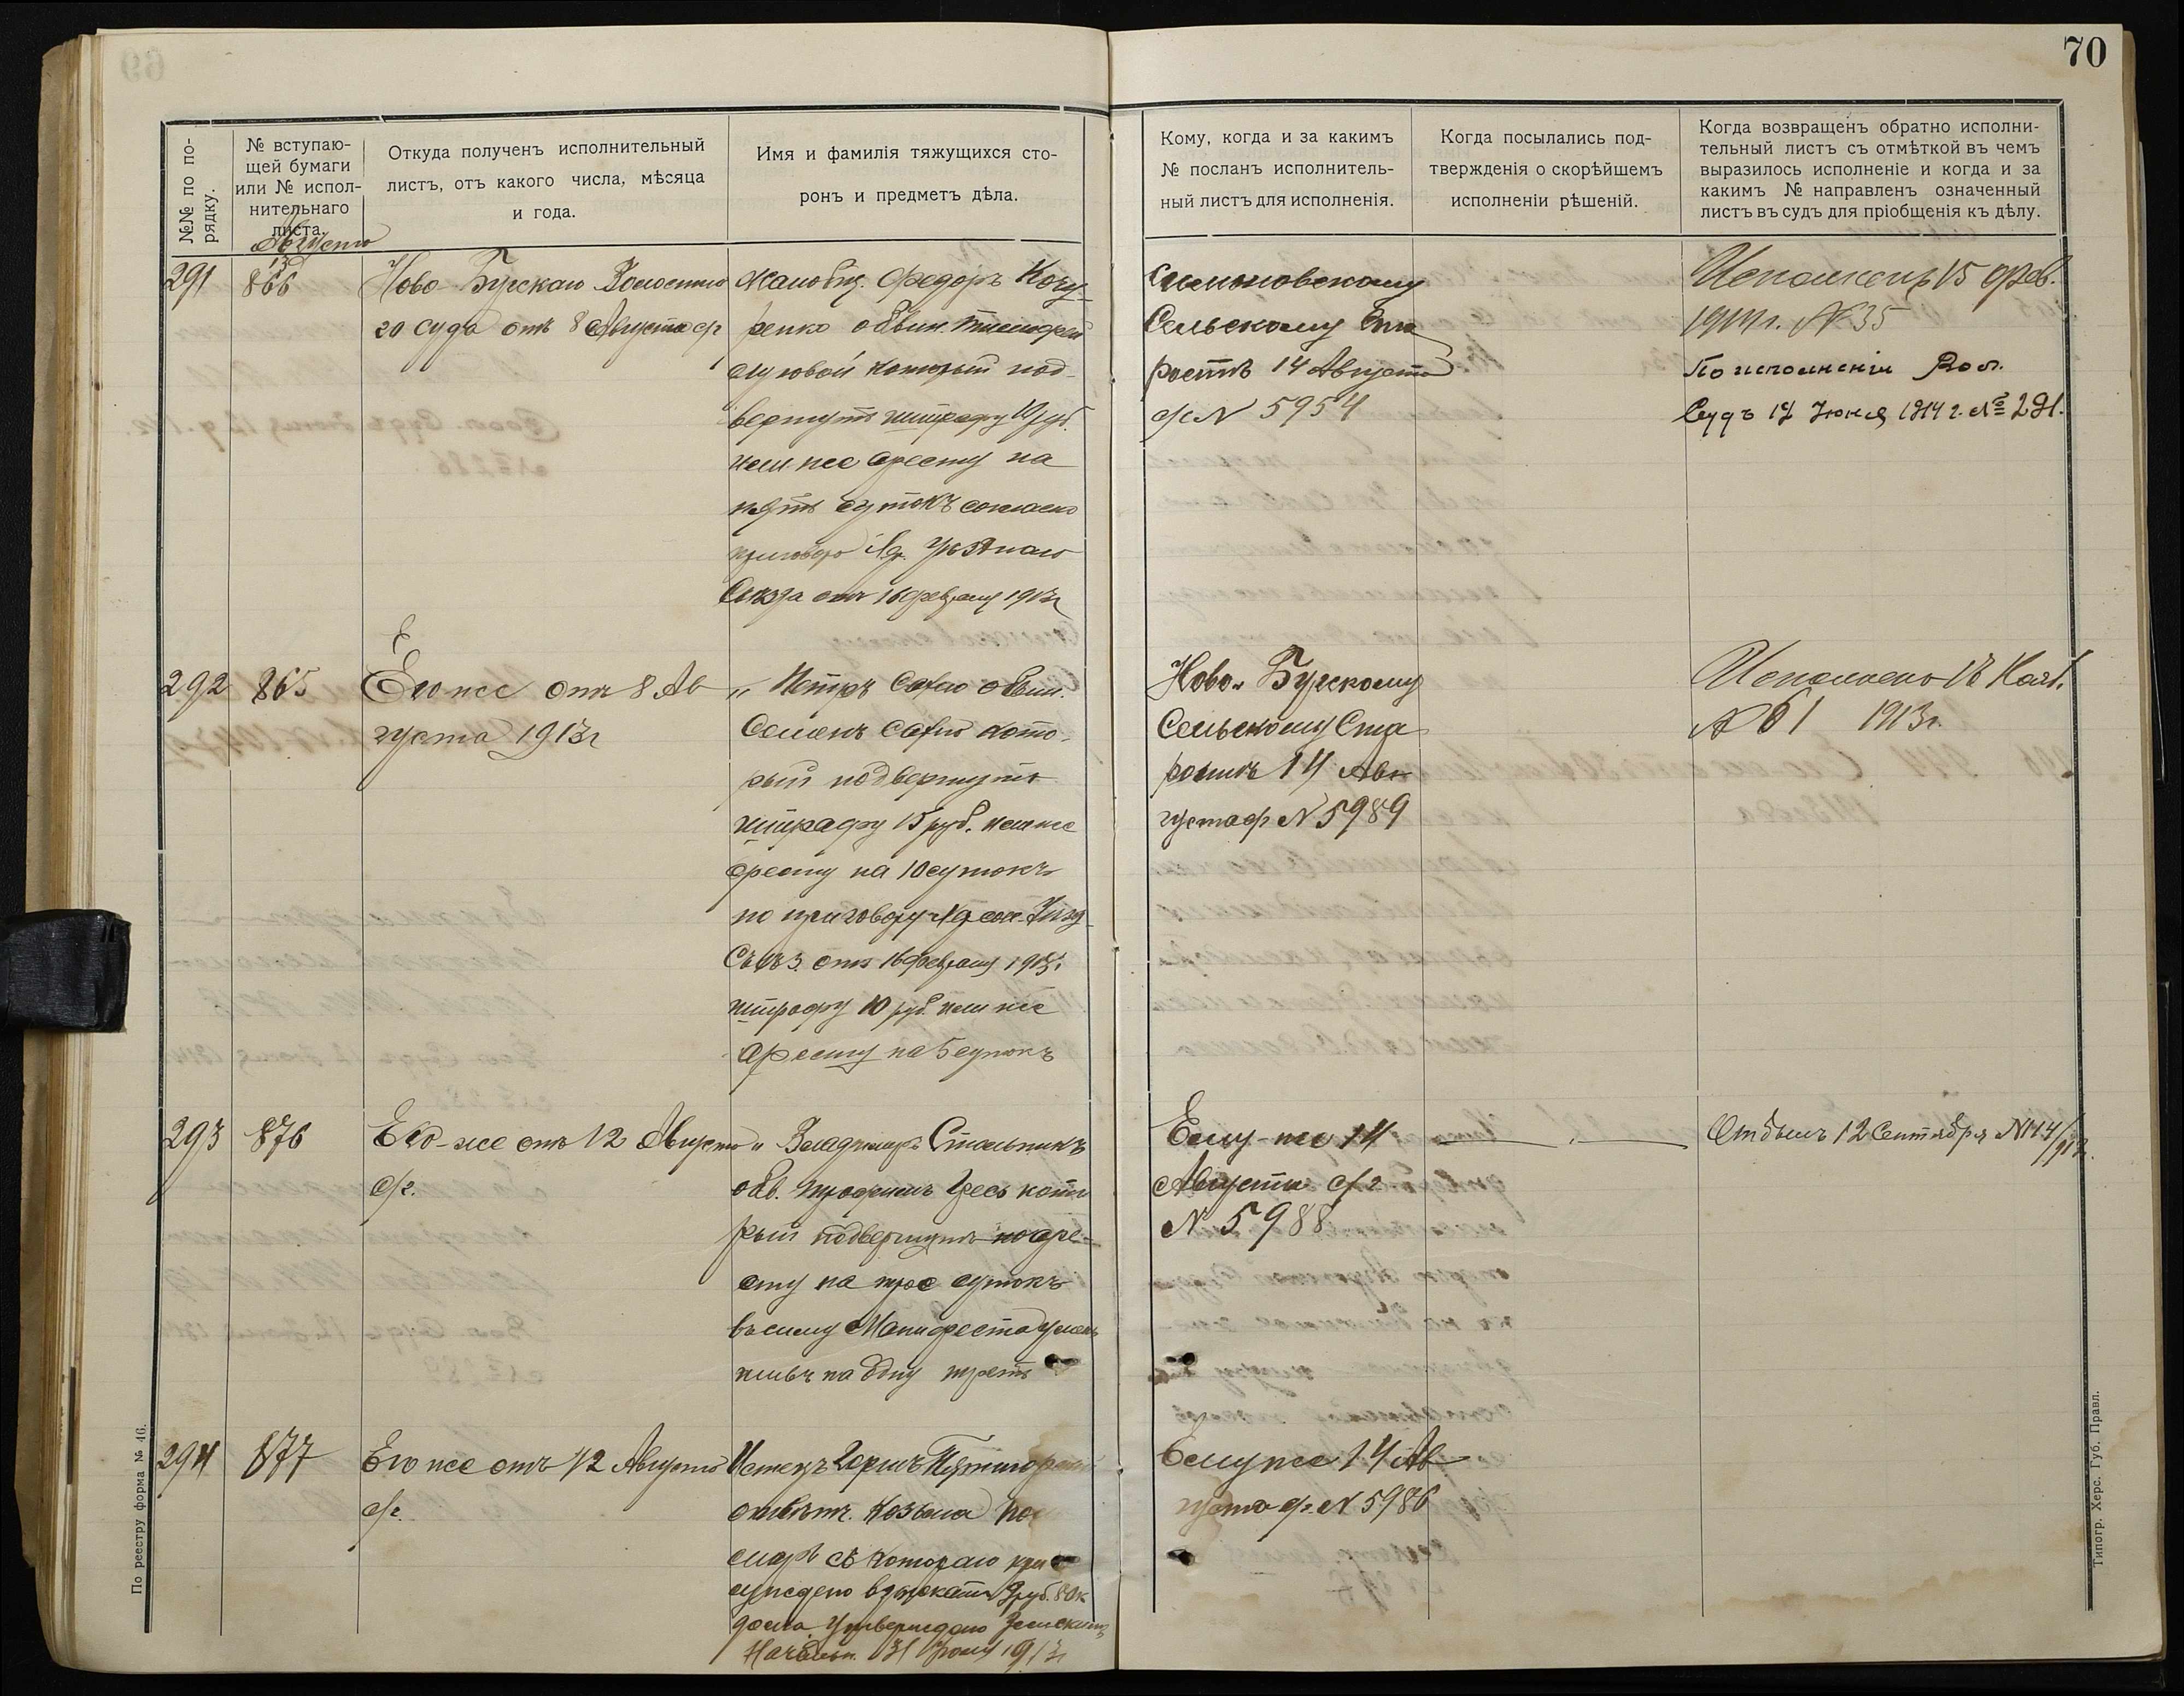 70
№№ по по-
рядку.
№ вступаю-
щей бумаги
или № испол-
нительнаго
листа.
Откуда полученъ исполнительный
листъ, отъ какого числа, мѣсяца
и года.
Имя и фамилія тяжущихся сто-
ронъ и предметъ дѣла.
Кому, когда и за какимъ
№ посланъ исполнитель-
ный листъ для исполненія.
Когда посылались под-
твержденія о скорѣйшемъ
исполненіи рѣшеній.
Когда возвращенъ обратно исполни-
тельный листъ съ отмѣткой въ чемъ
выразилось исполненіе и когда и за
какимъ № направленъ означенный
листъ въ судъ для пріобщенія къ дѣлу.
Августа
13
291
866
Ново-Бугскаго Волостно
го суда отъ 8 Августа с/г
Жалобщ. Федоръ Кочу-
ренко обвин. Тимофей
который под-
вергнутъ штрафу 10 руб.
или же аресту на
пять сутокъ согласно
приговора Уѣзднаго
Съѣзда отъ 16 февраля 1913 г
Сельскому Ста
ростѣ 14 Августа
с/г N 5954
Исполненъ 15 фев.
1914 г. № 35
По исполненіи Вол.
Судъ 12 Июня 1914 г. № 291.
292
865
Его же отъ 8 Ав
густа 1913 г
" Петръ обвин.
Семенъ кото-
рый подвергнутъ
штрафу 15 руб. или же
аресту на 10 сутокъ
по приговору Уѣзд
Съѣз. отъ 16 февраля 1913 г.
штрафу 10 руб. или же
аресту на 5 сутокъ
Ново-Бугскому
Сельскому Ста
ростѣ 14 Ав
густа с/г N 5989
Исполнено 18 Нояб.
№ 61 1913 г.
293
876
Его-же отъ 12 Августа
с/г.
" Владимиръ Стольникъ
обв. Трофимъ который
подвергнутъ аре-
сту на трое сутокъ
въ силу Манифеста умень
шивъ на одну треть
Ему-же 14
Августа с/г
N 5988
Отбылъ 12 Сентября N 114/913.
294
877
Его же отъ 12 Августа
с/г.
Истецъ
отвѣтч. Козьма
съ котораго при
суждено взыскать 9 руб. 80 к
Утверждено Земскимъ
Начальн. 31 1913 г
Ему же 14 Ав
густа с/г. N 5986
По реестру форма № 46.
Типогр. Херс. Губ. Правл.